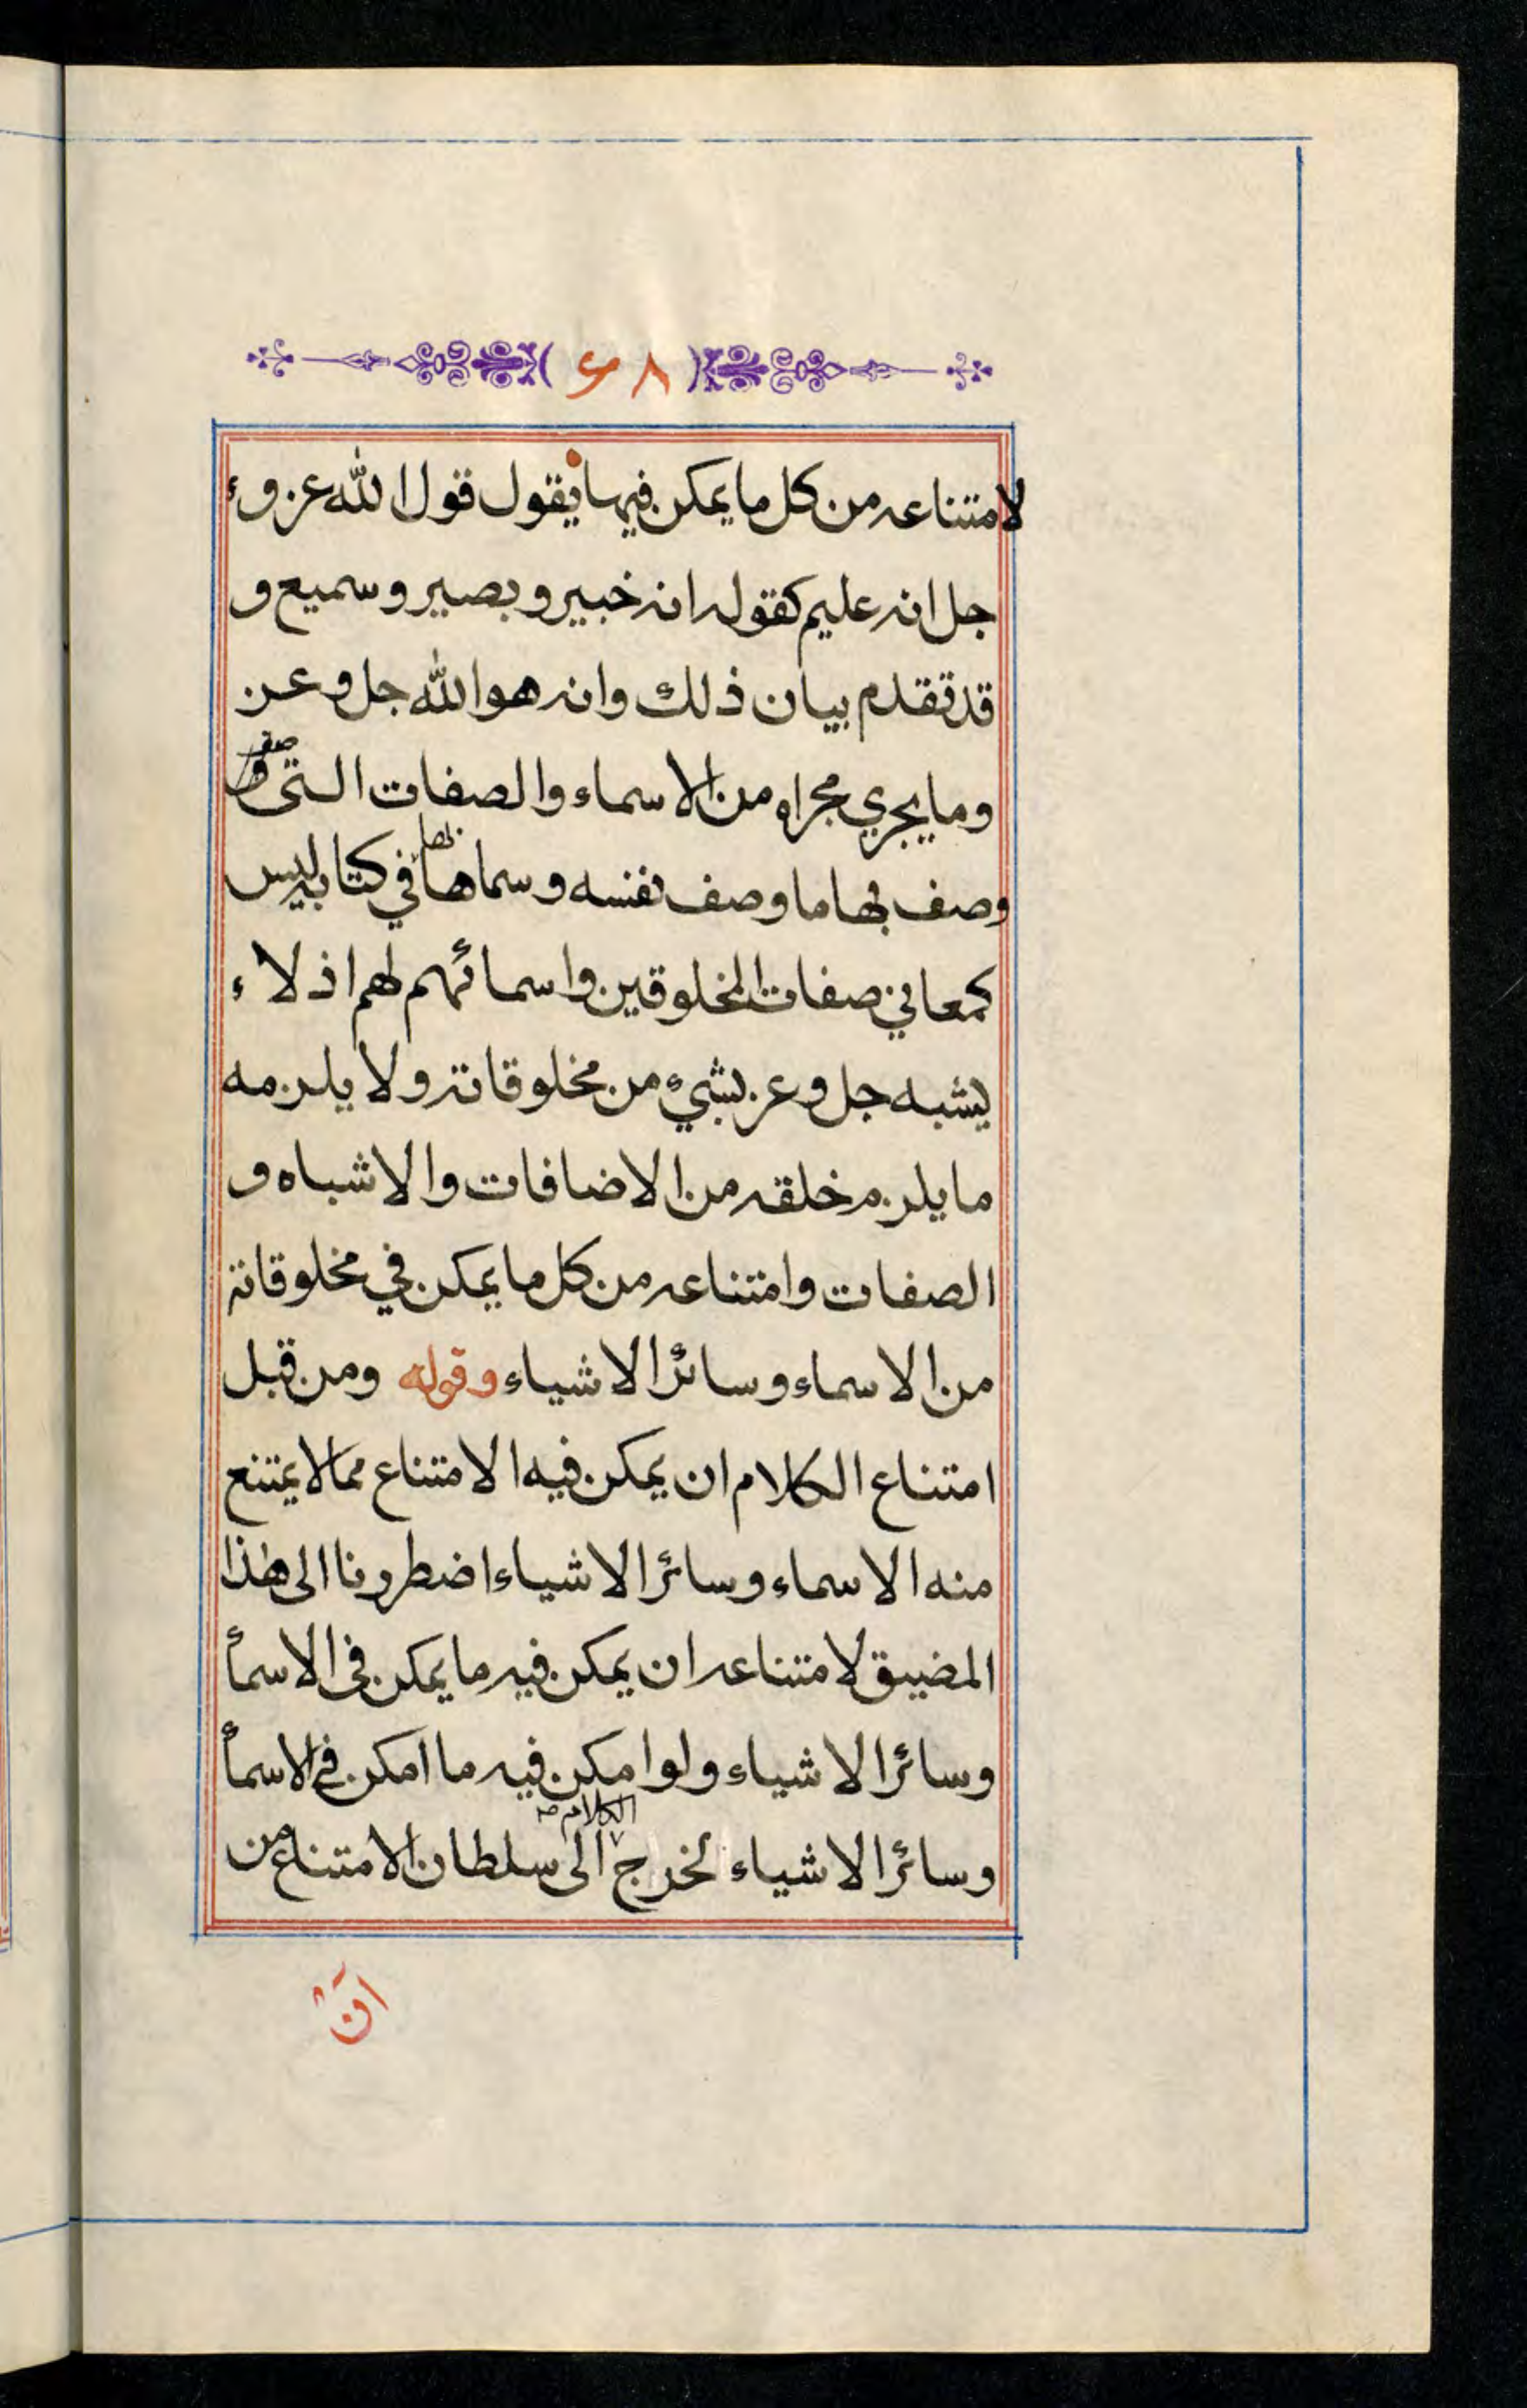 ٦٨
لامتناعه من كل ما يمكن فيها يقول قول الله عز و
جل انه عليم كقوله انه خبير و بصير و سميع و
قد تقدم بيان ذلك وانه هو الله جل و عز
وما يجري مجراه من الاسماء والصفات التى
وصف بها ما وصف نفسه و سماها بها في كتابه ليس
كمعاني صفات المخلوقين واسمائهم لهم اذ لا
يشبه جل و عز بشيء من مخلوقاته ولا يلزمه
ما يلزم خلقه من الاضافات والاشباه و
الصفات وامتناعه من كل ما يمكن في مخلوقاته
من الاسماء وسائر الاشياء وقوله ومن قبل
امتناع الكلام ان يمكن فيه الامتناع مما لا يمتنع
منه الاسماء وسائر الاشياء اضطرونا الى هذا
المضيق لامتناعه ان يمكن فيه ما يمكن فى الاسمأ
وسائر الاشياء ولو امكن فيه ما امكن في الاسمأ
وسائر الاشياء لخرج الكلام الى سلطان الامتناع من
ان